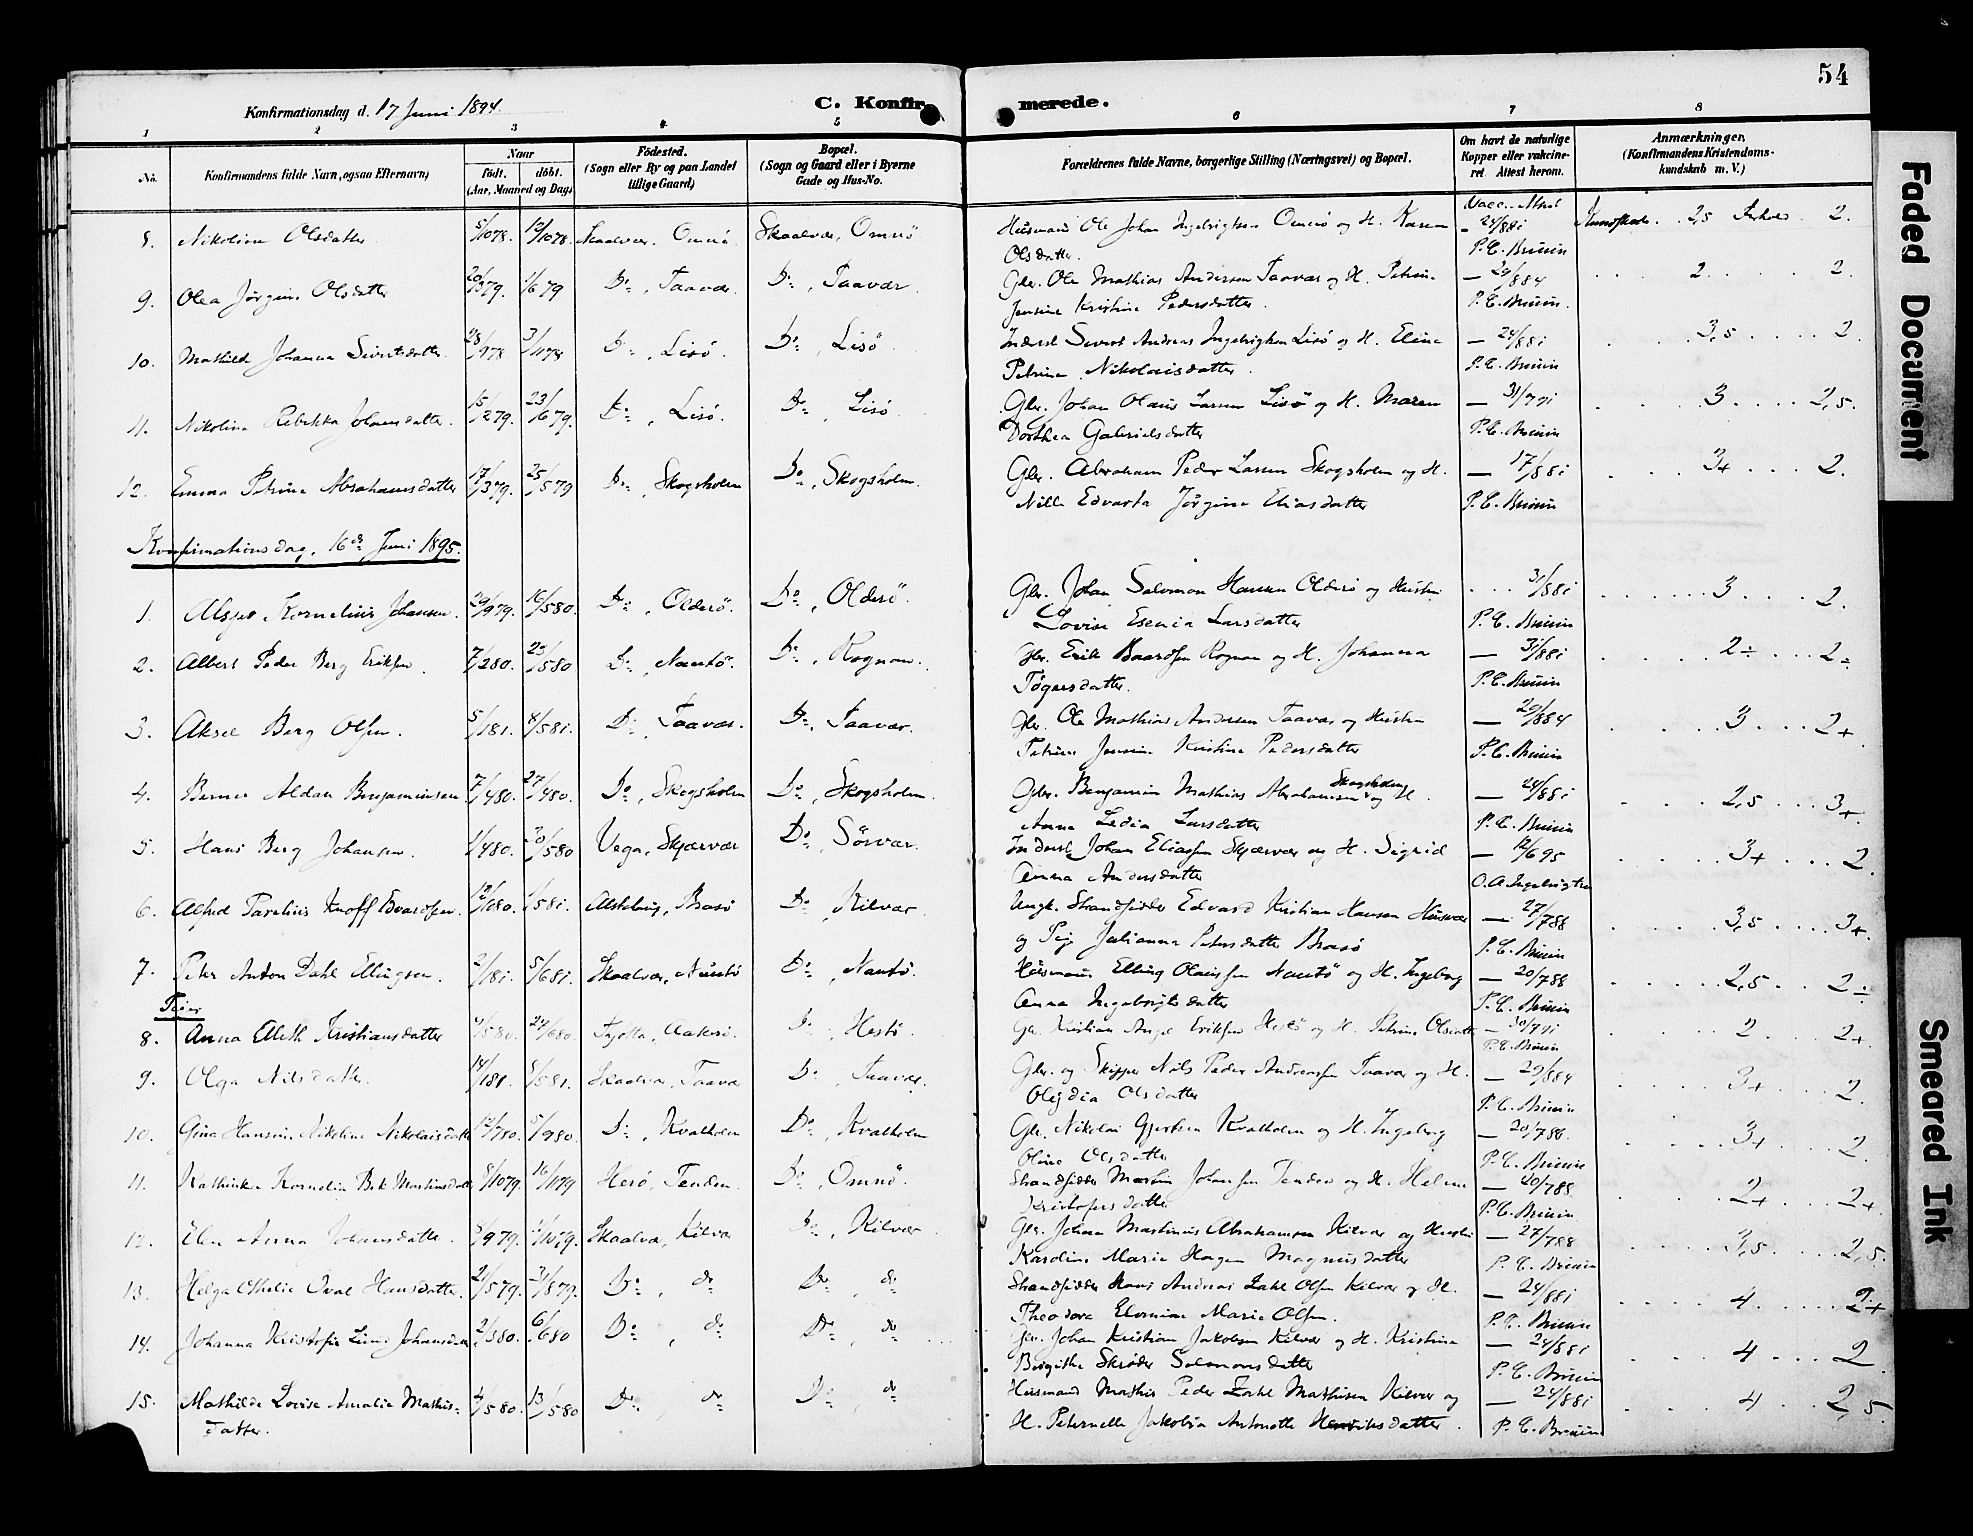 54
Konfirmationsdag d. 17 Juni 1894. C. Konfirmerede.
1 2 3 4 5 6 7 8
No. Konfirmandens fulde Navn, ogsaa Efternavn) Naar födt. döbt. (Aar, Maaned og Dag) Födested. (Sogn eller By og paa Landet tillige Gaard) Bopæl. (Sogn og Gaard eller i Byerne Gade og Hus-No. Forældrenes fulde Navne, borgerlige Stilling (Næringsvei) og Bopæl. Om havt de naturlige Kopper eller vakcineret Attest herom. Anmærkninger, (Konfirmandens Kristendomskundskab m. V.)
8. Nikoline Olsdatter 5/1078. /1078. Skaalvær, Omnö Skaalvær, Omnö Husmand Ole Johan Ingebrigtsen Omnö og H. Karen Vacc. Attest 24/88i Kundskab. 2,5 Forhold 2.
Olsdatter. P. C. Bruun
9. Olea Jörgine Olsdatter 20/379. 1/679 Do, Taavær. Do, Taavær Gbr. Ole Mathias Andersen Taavær og H. Petrine — 29/884 2 2.
Jensine Kristine Pedersdatter. P. C. Bruun.
10. Mathilde Johanna Sivertsdatter. 28/978 3/1178 Do, Lisö. Do, Lisö Inderst Sivert Andreas Ingebrigtsen Lisö og H. Eline — 24/88i 3,5 2.
Petrine Nikolaisdatter. P. C. Bruun
11. Nikoline Rebekka Johansdatter. 15/279. 23/679. Do, Lisö. Do, Lisö. Gbr. Johan Olaus Larsen Lisö og H. Maren — 31/791 3 2,5.
Dorthea Gabrielsdatter P. C. Bruun
12. Emma Petrine Abrahamsdatter 17/379. 25/579 Do, Skogsholm Do, Skogsholm. Gbr. Abraham Peder Larsen Skogsholm og H. — 17/88i 3+ 2.
Nille Edvarda Jörgine Eliasdatter P. C. Bruun
Konfirmationsdag, 16de Juni 1895.
1. Kornelius Johansen. 29/979. 16/580. Do, Olderö. Do, Olderö Gbr. Johan Salomon Hansen Olderö og Hustru 31/88i 3 2.
Lovise Esenia Larsdatter P. C. Bruun
2. Albert Peder Berg Eriksen. 7/280. 23/580 Do, Nautö. Do, Rognan. Gbr. Erik Baardsen Rognan og H. Johanna — 31/88i 2÷ 2÷
Tögersdatter. P. C. Bruun
3. Aksel Berg Olsen. 5/181. 8/581. Do, Taavær. Do, Taavær. Gbr. Ole Mathias Andersen Taavær og Hustru — 29/884 3 2+
Petrine Jensine Kristine Pedersdatter P. C. Bruun
4. Berner Aldan Benjaminsen 7/480. 27/480. Do, Skogsholm Do, Skogsholm. Gbr. Benjamin Mathias Abrahamsen Skogsholm og H. — 24/88i 2,5 3+.
Anna Ledia Larsdatter P. C. Bruun
5. Hans Berg Johansen. 1/480. 30/580 Vega, Skjærvær Do, Sörvær. Inderst Johan Eliassen Skjærvær og H. Sigrid — 12/695 3+ 2.
Anna Andersdatter O. A. Ingebrigtsen
6. Alfred Parelius Knoff Edvardsen. /1080. 1/581. Alstahaug, Brasö Do, Kilvær. Ungk. Strandsidder Edvard Kristian Hansen Husvær — 27/788 3,5 3+.
og Pig. Julianna Petersdatter Brasö P. C. Bruun
7. Peter Anton Dahl Ellingsen. 2/181. 5/681. Skaalvær, Nautö Do, Nautö. Husmand Elling Olaussen Nautö og H. Ingeborg — 20/788 2,5 2÷
Anna Ingebrigtsdatter P. C. Bruun
Piger
8. Anna Elleth Kristiansdatter /580. 27/680. Tjötta, Do, Hestö. Gbr. Kristian Angel Eriksen Hestö og H. Petrine Olsdatter — 30/791 2 2+
P. C. Bruun
9. Olga Nilsdatter. 14/181. 8/581. Skaalvær, Taavær Do, Taavær. Gbr. og Skipper Nils Peder Andreassen Taavær og H. — 29/884 3+ 2.
Oligdia Olsdatter P. C. Bruun
10. Gina Hansine Nikoline Nikolaisdatter 12/780. 5/980. Do, Kvalholm Do, Kvalholm Gbr. Nikolai Gjertsen Kvalholm og H. Ingeborg — 20/788. 3+ 2.
Oline Olsdatter P. C. Bruun
11. Kathinka Kornelia Bek Martinsdatter 8/1079. 16/1179 Herö, Tenden Do, Omnö. Strandsidder Martin Johansen Tenden og H. Helene — 20/788 2+ 2+.
Kristofersdatter P. C. Bruun
12. Elen Anna Johansdatter. /979. /1079. Skaalvær, Kilvær Do, Kilvær Gbr. Johan Martinus Abrahamsen Kilvær og Hustru — 27/788 3,5 2,5.
Karoline Marie Hagen Magnusdatter P. C. Bruun
13. Helga Othelie Oval Hansdatter. 24/579. 31/879. Do, do Do, do Strandsidder Hans Andreas Zahl Olsen Kilvær og H. — 24/88i 4 2+
Theodora Elomine Marie Olsen. P. C. Bruun
14. Johanna Kristofa Johansdatter 2/380. 6/680 Do, do Do, do Gbr. Johan Kristian Jakobsen Kilvær og H. Kristine — 24/88i 4 2
Birgithe Skröder Salomonsdatter P. C. Bruun
15. Mathilde Lovise Amalie Mathis- 4/580. 13/580 Do, do Do, do Husmand Mathis Peder Zahl Mathisen Kilvær og — 24/88i 4 2,5.
datter. H. Peternelle Jakobia Antonette Henriksdatter. P. C. Bruun
Faded Document
Smeared Ink